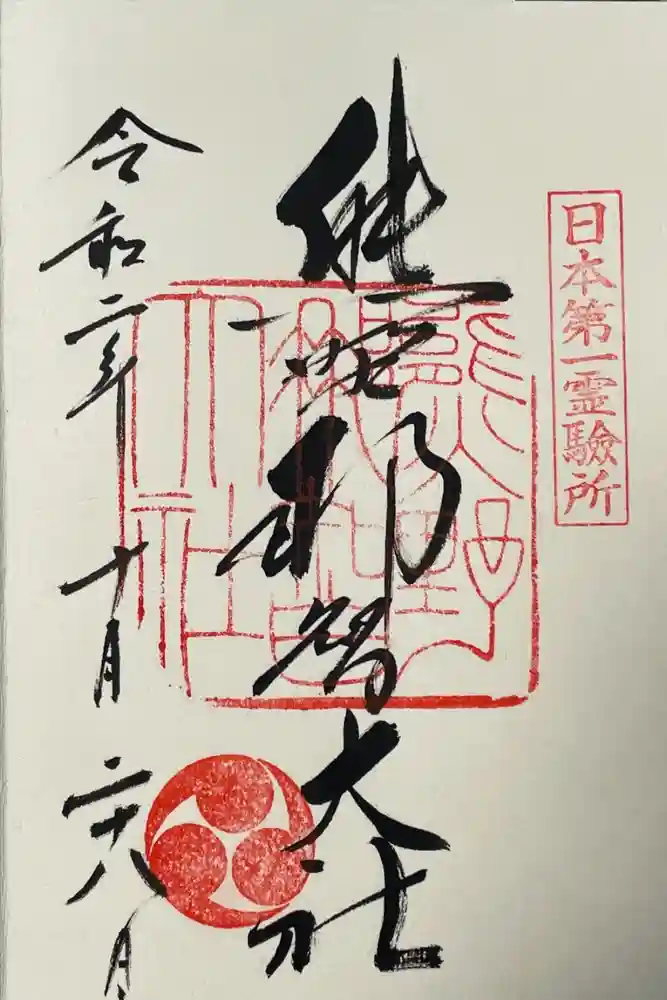 日本第一霊験所
熊野那智大社
熊野
那智
大社
令和二年十月二十八日